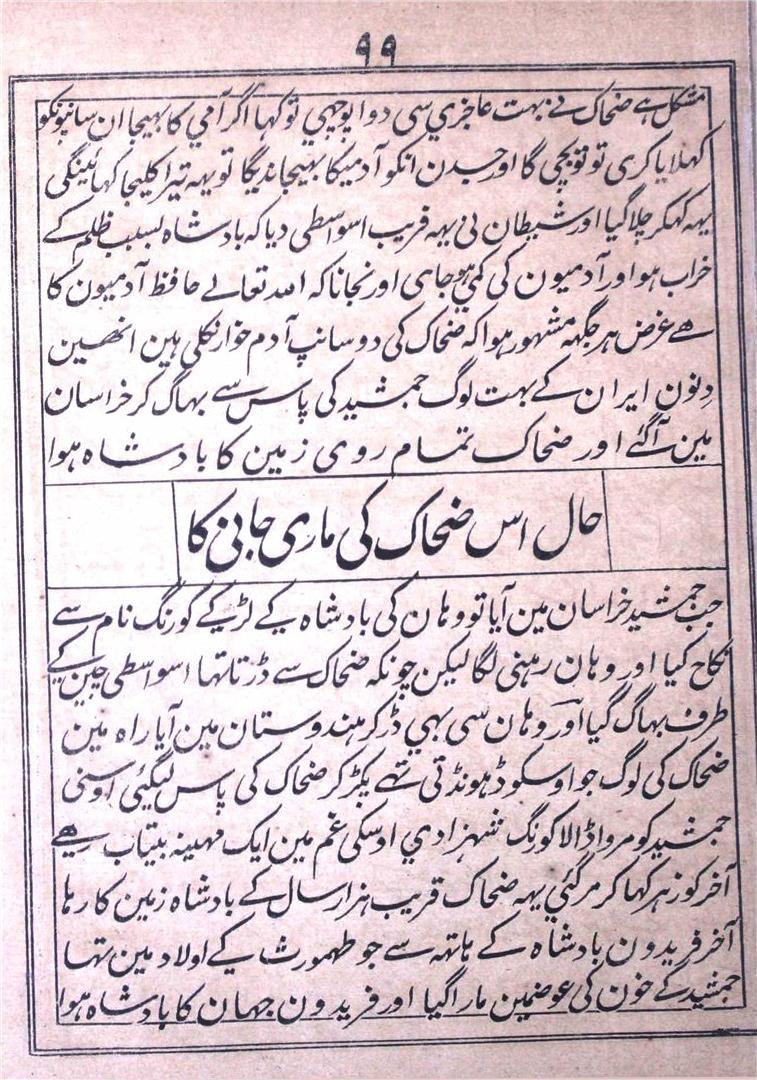 ۹۹
مشکل ہے ضحاک نے بہت عاجزی سی دوا پوچھی تو کہا اگر آدمی کا بھیجا ان سانپونکو
کھلایا کری تو تو بچی گا اور جسدن انکو آدمیکا بھیجا ندیگا تو یہہ تیرا کلیجا کھائینگی
یہہ کہکر چلا گیا اور شیطان نی یہہ فریب اسواسطی دیا کہ بادشاہ بسبب ظلم کے
خراب ہو اور آدمیون کی کمی ہو جای اور نجانا کہ اللہ تعالے حافظ آدمیون کا
ھے غرض ہر جگہہ مشہور ہوا کہ ضحاک کی دو سانپ آدم خوار نکلی ہین انھین
دِنون ایران کے بہت لوگ جمشید کی پاس سے بہاگ کر خراسان
مین آگئے اور ضحاک تمام روی زمین کا بادشاہ ہوا
حال اس ضحاک کی ماری جانی کا
جب جمشید خراسان مین آیا تو وہان کی بادشاہ کے لڑکے کورنگ نام سے
نکاح کیا اور وہان رہنی لگا لیکن چونکہ ضحاک سے ڈرتا تہا اسواسطی چین کے
طرف بہاگ گیا اور وہان سی بہی ڈر کر ہندوستان مین آیا راہ مین
ضحاک کی لوگ جو اوسکو ڈہونڈتی تہے پکڑ کر ضحاک کی پاس لیگئی اوسنی
جمشید کو مروا ڈالا کورنگ شہزادی اوسکی غم مین ایک مہینہ بیتاب رہے
آخر کو زہر کہا کر مر گئی یہہ ضحاک قریب ہزار سال کے بادشاہ زمین کا رہا
آخر فریدون بادشاہ کے ہاتہہ سے جو طہمورث کے اولاد مین تہا
جمشید کے خون کی عوضمین مارا گیا اور فریدون جہان کا بادشاہ ہوا